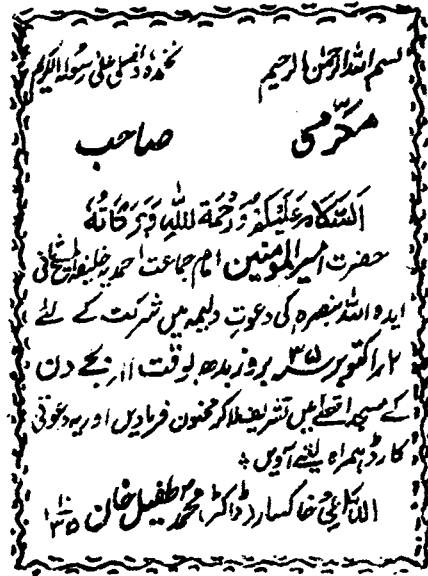 بسم اللہ الرحمٰن الرحیم نحمدہ و نصلی علیٰ رسولہ الکریم
مکرمی صاحب
السَّلَامُ عَلَيْكُمْ وَرَحْمَةُ اللّٰهِ وَبَرَكَاتُهُ
حضرت امیرالمومنین امام جماعت احمدیہ خلیفۃ المسیح الثانی
ایدہ اللہ بنصرہ کی دعوتِ ولیمہ میں شرکت کے لئے
۲ اکتوبر ۳۵ء بروز بدھ بوقت ۱۱ بجے دن
کے مسجد اقصےٰ میں تشریف لا کر ممنون فرمادیں اور یہ دعوتی
کارڈ ہمراہ لیتے آویں
الداعی خاکسار (ڈاکٹر) محمد طفیل خان